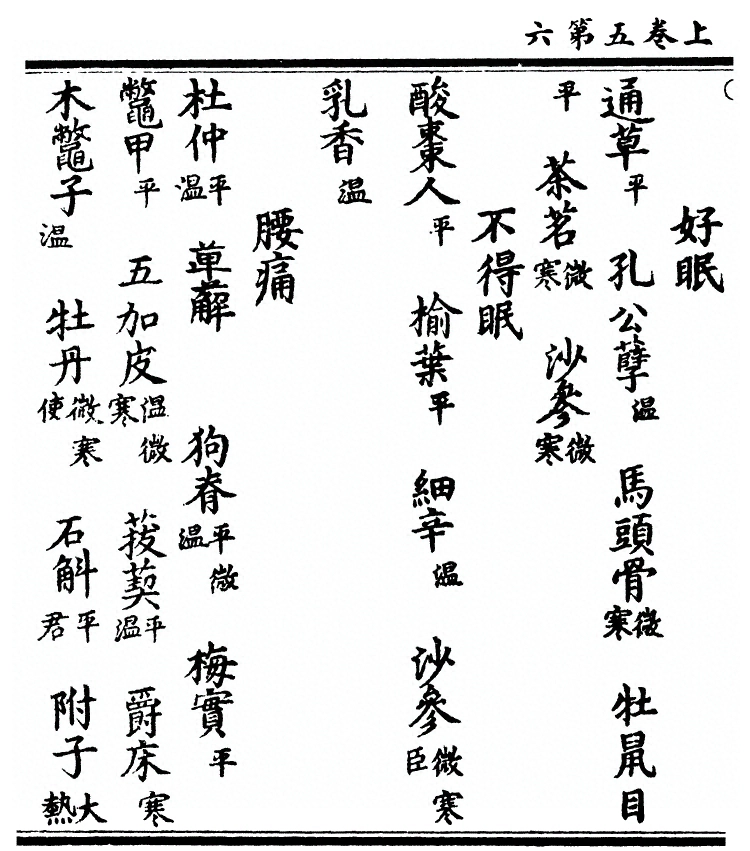 上卷五第六
好眠
通草平 孔公孽温 馬頭骨微寒 牡鼠目
平 茶茗微寒 沙參微寒
不得眠
酸棗人平 榆葉平 細辛温 沙參微寒臣
乳香温
腰痛
杜仲平温 萆薢 狗脊平微温 梅實平
鼈甲平 五加皮温微寒 菝葜平温 爵床寒
木鼈子温 牡丹微寒使 石斛平君 附子大熱